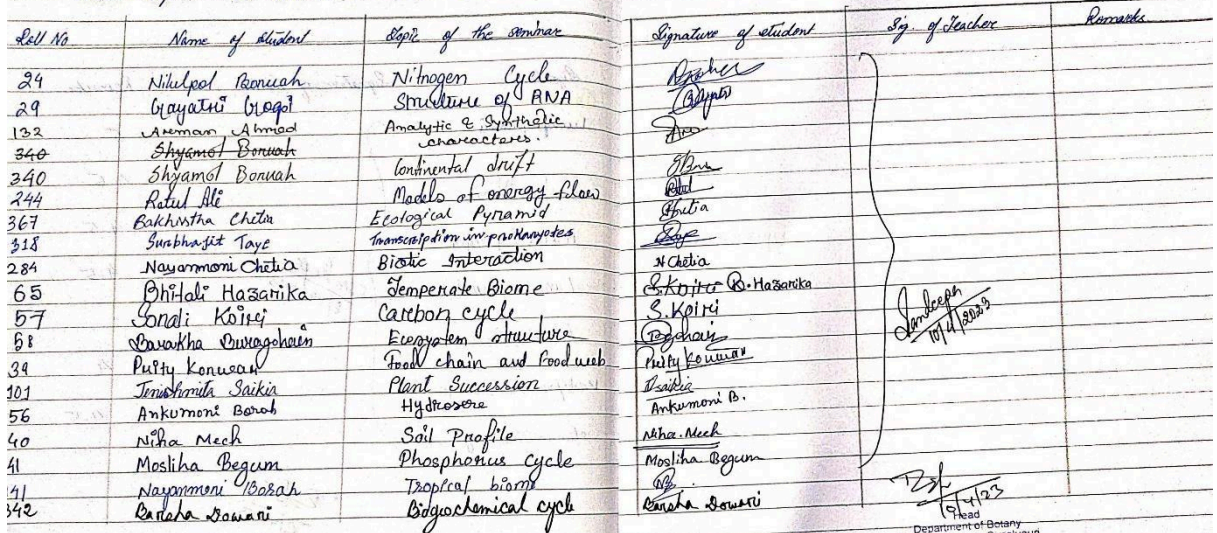 Roll No Name of student Topic of the seminar Signature of student Sig. of Teacher Remarks
24 Nilulpol Boruah Nitrogen Cycle
29 Gayatri Gogoi Structure of RNA
132 Areman Ahmed Analytic & Synthetic
characteres.
340 Shyamol Boruah
340 Shyamol Boruah Continental drift
244 Ratul Ali Models of energy flow
367 Bakhirtha Chetia Ecological Pyramid Chetia
318 Surabhajit Taye Transcription in prokaryotes
284 Nayanmoni Chetia Biotic Interaction N Chetia
65 Bhitali Hazarika Temperate Biome S.Koiri B. Hazarika
57 Sonali Koiri Carbon cycle S. Koiri
58 Barakha Buragohain Ecosystem structure
39 Purity Konwar Food chain and Food web Purity Konwar
101 Jenishmita Saikia Plant Succession Saikia
56 Ankumoni Borah Hydrosere Ankumoni B.
40 Niha Mech Soil Profile Niha Mech
41 Mosliha Begum Phosphorus Cycle Mosliha Begum
41 Nayanmoni Borah Tropical biome
342 Barsha Dowari Biogeochemical cycle Barsha Dowari
Sandeepa
10/4/2023
10/4/23
Head
Department of Botany